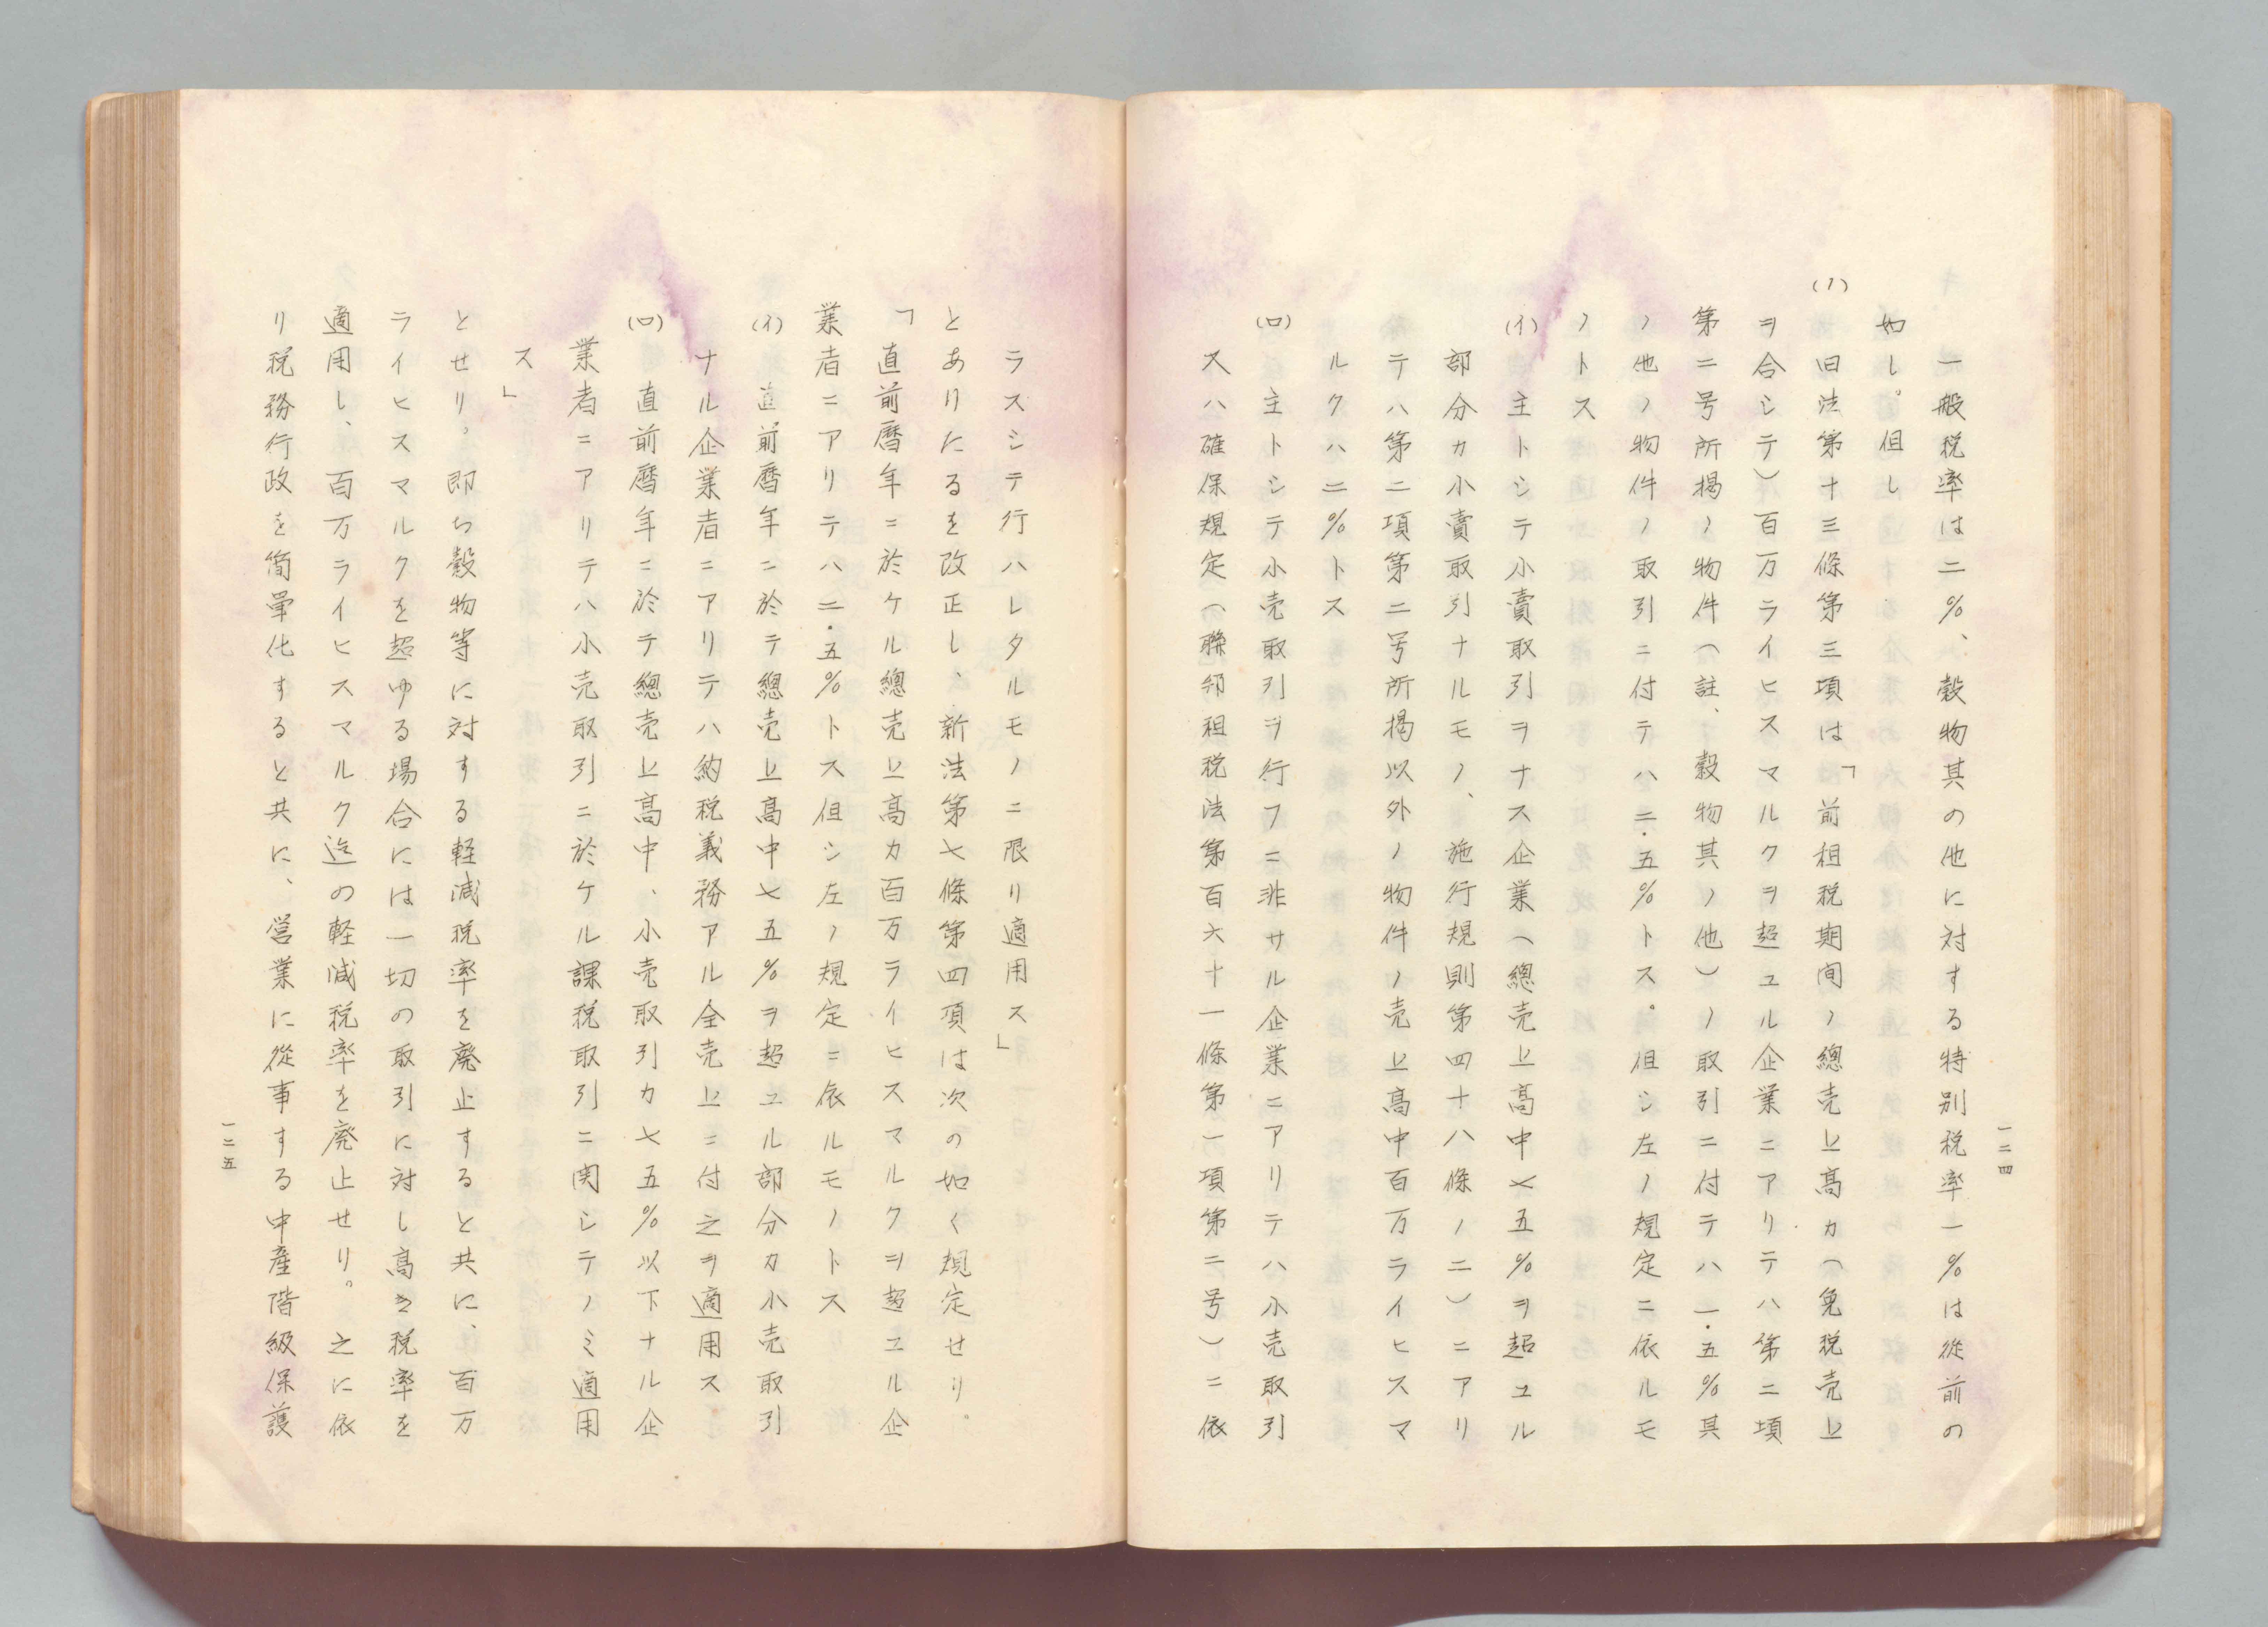 一二四
一般税率は二%、穀物其の他に対する特別税率一%は従前の
如し。但し
(1) 旧法第十三條第三項は「前租税期間ノ總売上高カ（免税売上
ヲ合シテ）百万ライヒスマルクヲ超ユル企業ニアリテハ第二項
第二号所掲ノ物件（註、穀物其ノ他）ノ取引ニ付テハ一・五%其
ノ他ノ物件ノ取引ニ付テハ二・五%トス。但シ左ノ規定ニ依ルモ
ノトス
(イ) 主トシテ小賣取引ヲナス企業（總売上高中七五%ヲ超ユル
部分カ小賣取引ナルモノ、施行規則第四十八條ノ二）ニアリ
テハ第二項第二号所掲以外ノ物件ノ売上高中百万ライヒスマ
ルクハ二%トス
(ロ) 主トシテ小売取引ヲ行フニ非サル企業ニアリテハ小売取引
ス八確保規定（聯邦租税法第百六十一條第一項第二号）ニ依
ラスシテ行ハレタルモノニ限リ適用ス」
とありたるを改正し、新法第七條第四項は次の如く規定せり。
「直前暦年ニ於ケル總売上高カ百万ライヒスマルクヲ超ユル企
業者ニアリテハ二・五%トス但シ左ノ規定ニ依ルモノトス
(イ) 直前暦年ニ於テ總売上高中七五%ヲ超ユル部分カ小売取引
ナル企業者ニアリテハ納税義務アル全売上ニ付之ヲ適用ス
(ロ) 直前暦年ニ於テ總売上高中、小売取引カ七五%以下ナル企
業者ニアリテハ小売取引ニ於ケル課税取引ニ関シテノミ適用
ス」
とせり。即ち穀物等に対する軽減税率を廃止すると共に、百万
ライヒスマルクを超ゆる場合には一切の取引に対し高き税率を
適用し、百万ライヒスマルク迄の軽減税率を廃止せり。之に依
り税務行政を簡單化すると共に、営業に從事する中産階級保護
一二五